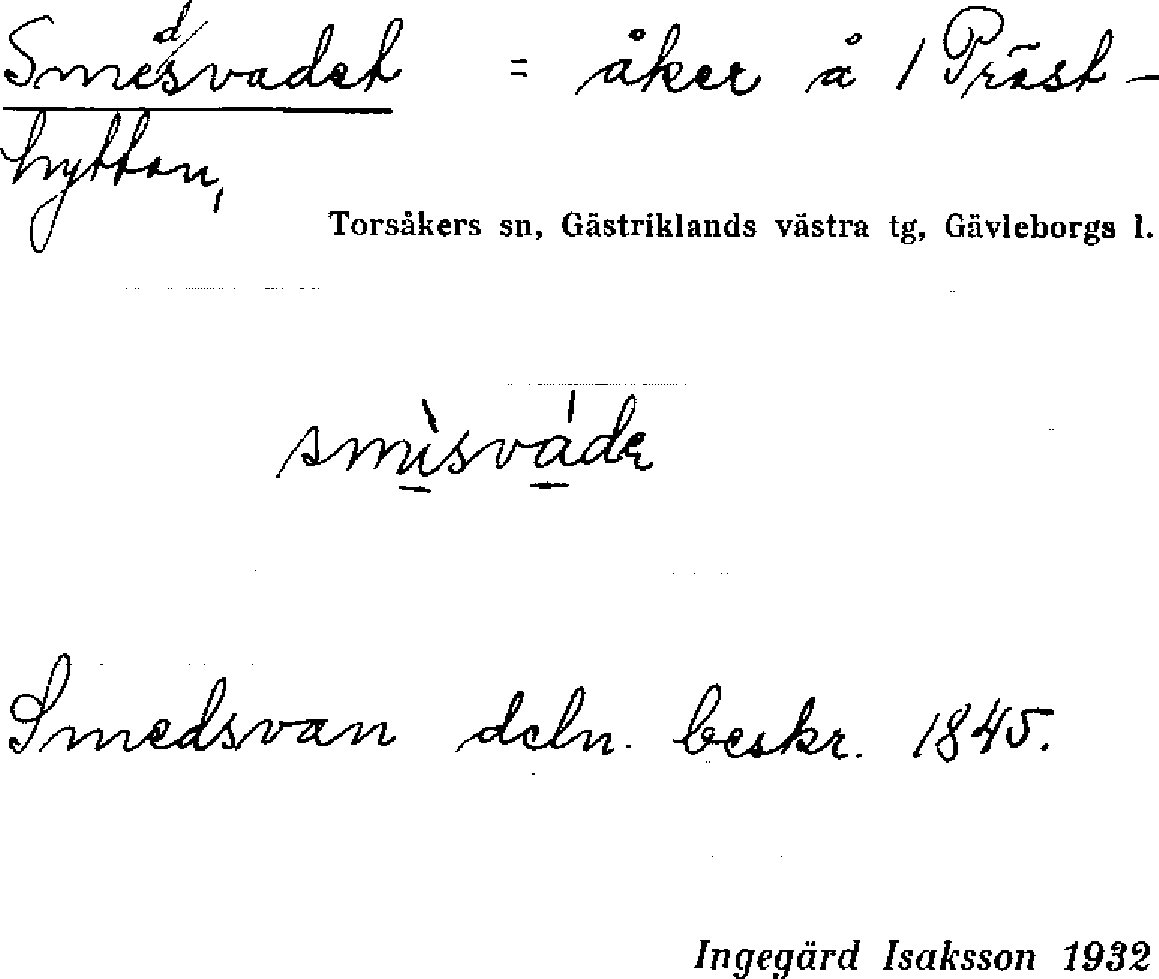 Smedsvadet = åker å 1 Präst-
hyttan,
Torsåkers sn, Gästriklands västra tg, Gävleborgs l.
smìsváde
Smedsvan deln. beskr. 1845.
Ingegärd Isaksson 1932